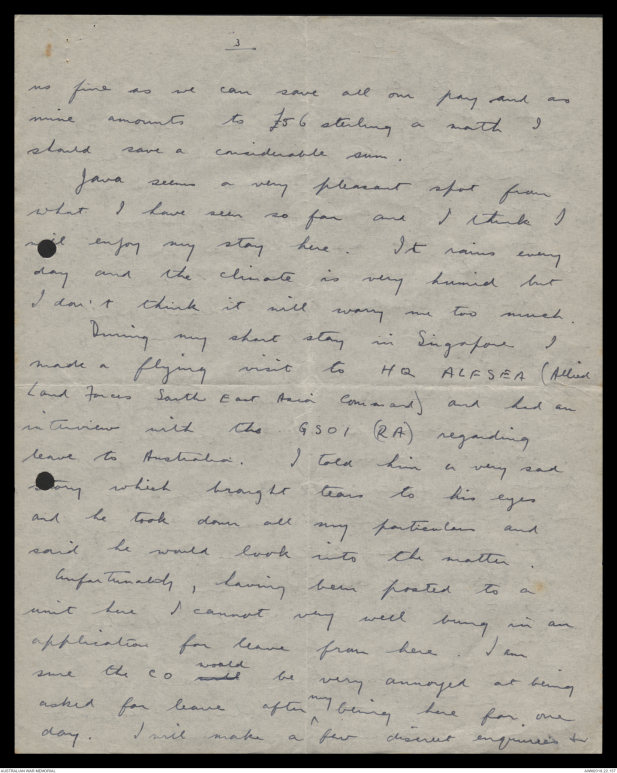 3
us fine as we can save all our pay and as
mine amounts to £56 sterling a month I
should save a considerable sum.
Java seems a very pleasant spot from
what I have seen so far and I think I
will enjoy my stay here. It rains every
day and the climate is very humid but
I don't think it will worry me too much.
During my short stay in Singapore I
made a flying visit to HQ ALFSEA (Allied
Land Forces South East Asia Command) and had an
interview with the GSO1 (RA) regarding
leave to Australia. I told him a very sad
story which brought tears to his eyes
and he took down all my particulars and
said he would look into the matter.
Unfortunately, having been posted to a
unit here I cannot very well bung in an
application for leave from here. I am
sure the CO would be very annoyed at being
asked for leave after my being here for one
day. I will make a few discreet enquiries
AUSTRALIAN WAR MEMORIAL